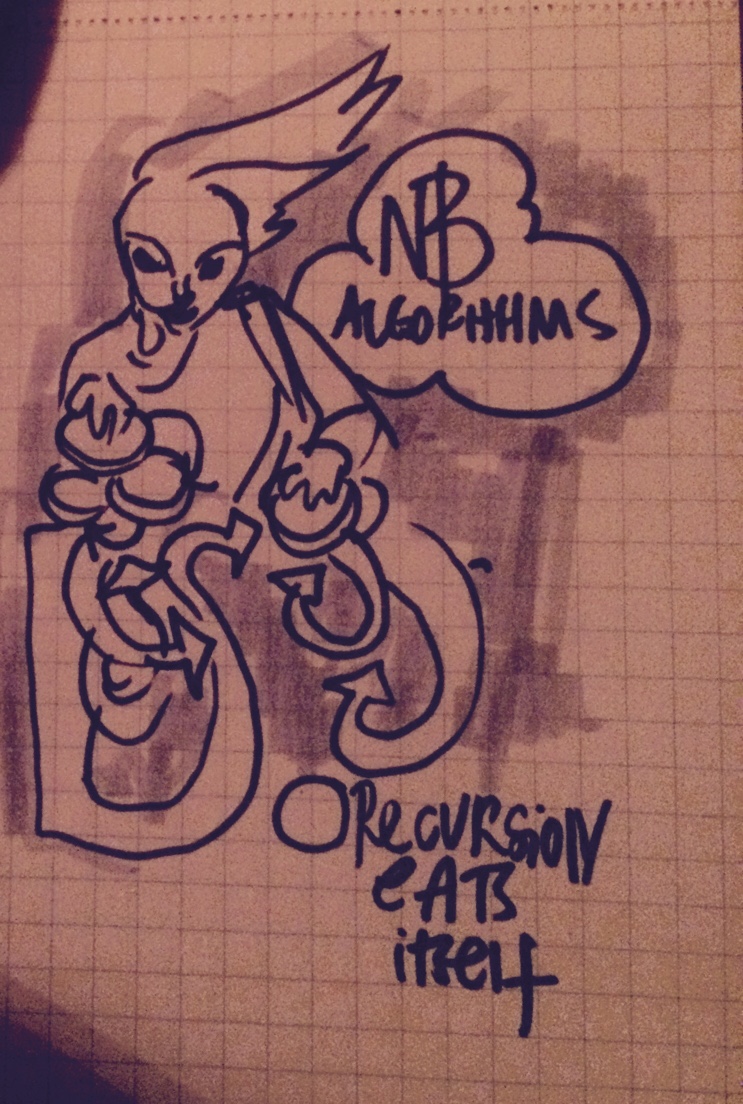 NB
ALGORHHMS
RecURSiON
eATS
itself